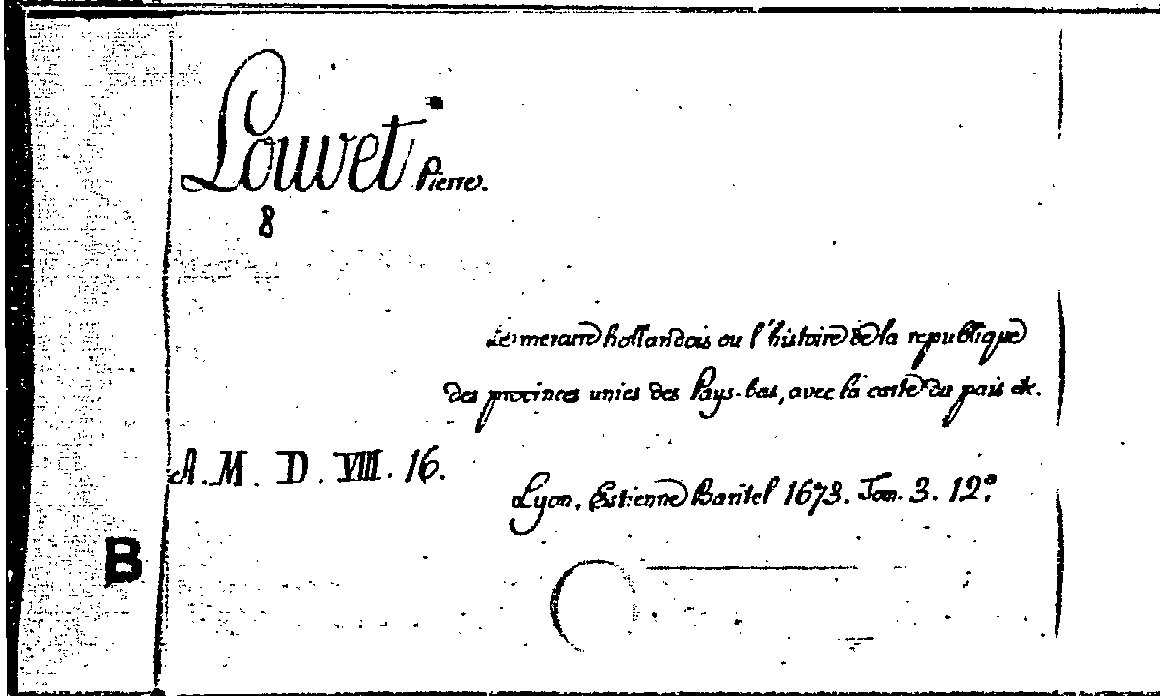 Louvet Pierre.
8
Le mercure hollandois ou l'histoire de la republique
des provinces unies des Pays-bas, avec la carte du païs etc.
A. M. D. VIII. 16.
Lyon, Estienne Baritel 1673. Tom. 3. 12°.
B